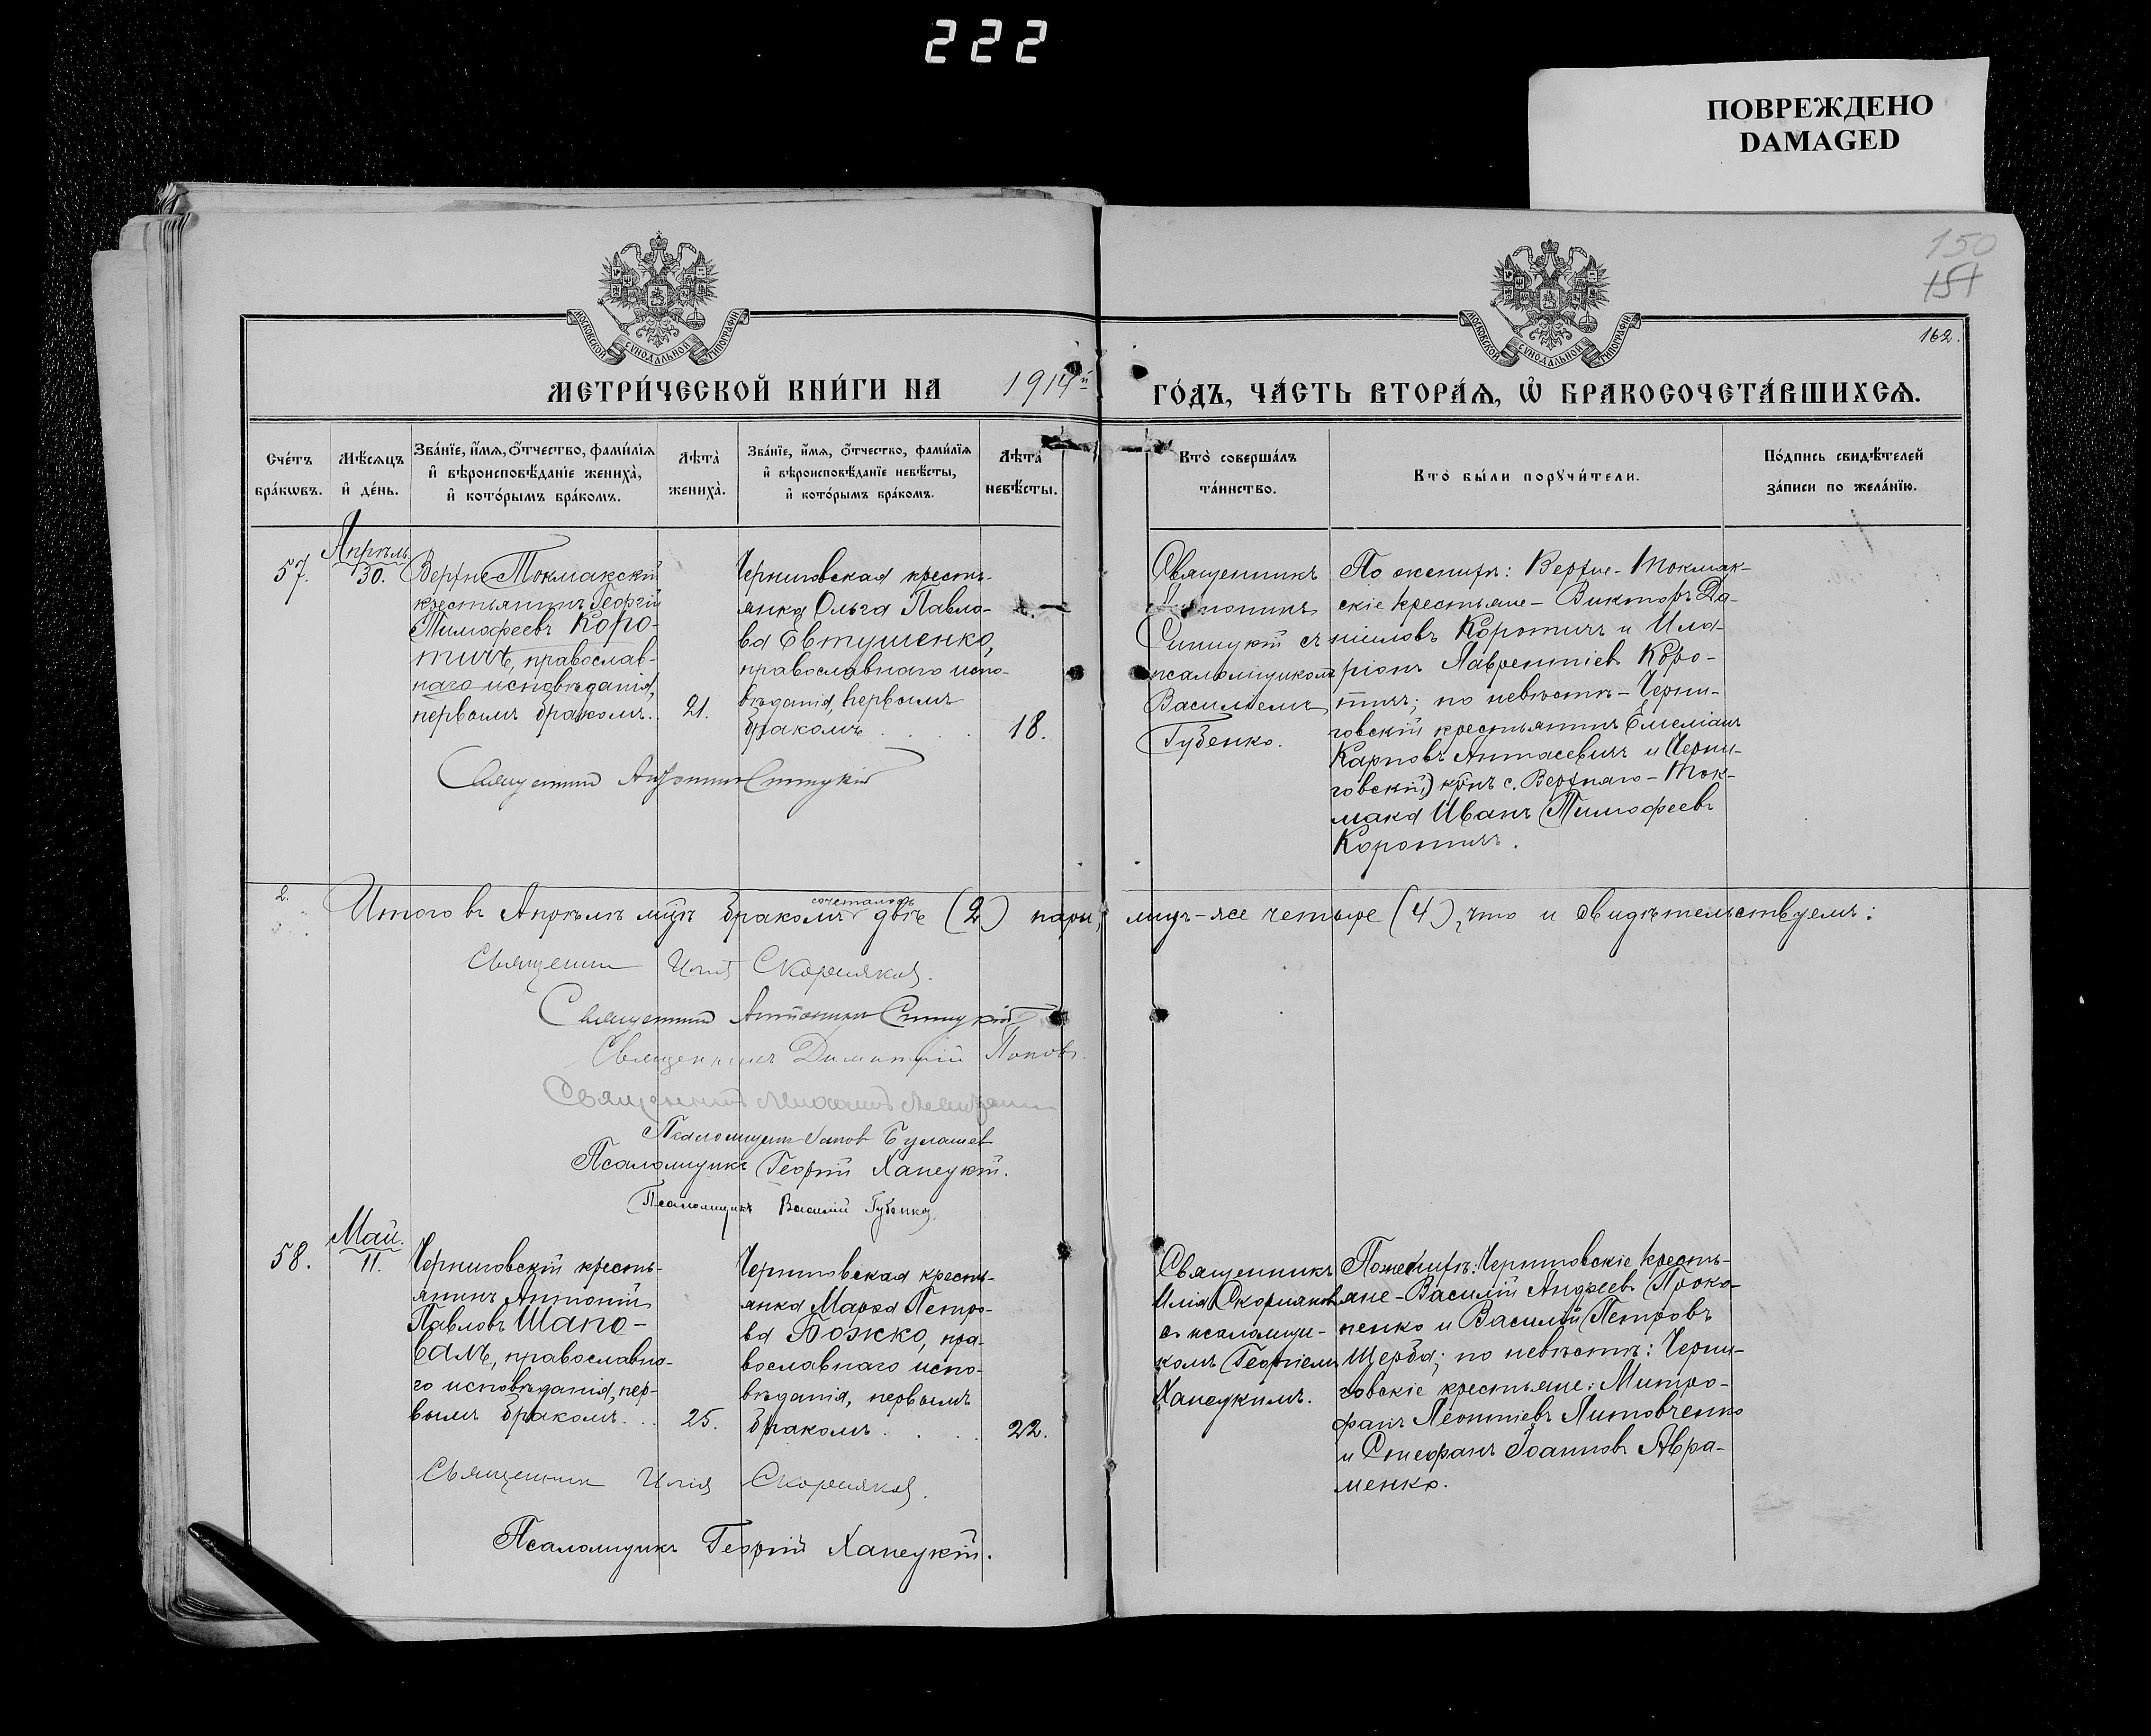 222
ПОВРЕЖДЕНО
DAMAGED
150
151
162.
МОСКОВСКОЙ СУНОДАЛЬНОЙ ТИПОГРАФІИ
МОСКОВСКОЙ СУНОДАЛЬНОЙ ТИПОГРАФІИ
МЕТРИ́ЧЕСКОЙ КНИ́ГИ НА 1914й ГО́ДЪ, ЧА́СТЬ ВТОРА́Ѧ, Ѡ҆ БРАКОСОЧЕТА́ВШИХСѦ.
Сче́тъ
бра́кѡвъ.
Мѣ́сѧцъ
и҆ де́нь.
Зва́нїе, и҆́мѧ, ѻ҆́тчество, фами́лїѧ
и҆ вѣроисповѣ́данїе жениха̀,
и҆ кото́рымъ бра́комъ.
Лѣ́та
жениха̀.
Зва́нїе, и҆́мѧ, ѻ҆́тчество, фами́лїѧ
и҆ вѣроисповѣ́данїе невѣ́сты,
и҆ кото́рымъ бра́комъ.
Лѣ́та
невѣ́сты.
Кто̀ соверша́лъ
та́инство.
Кто̀ бы́ли порꙋчи́тели.
По́дпись свидѣ́телей
за́писи по жела́нїю.
57.
Апрѣль.
30.
Верхне-Токмакскій
крестьянинъ Георгій
Тимофеевъ Коро-
тичъ, православ-
наго исповѣданія,
первымъ бракомъ.
21.
Черниговская кресть-
янка Ольга Павло-
ва Евтушенко,
православнаго испо-
вѣданія, первымъ
бракомъ . . .
18.
Священникъ
Антонинъ
Синицкій съ
псаломщикомъ
Василіемъ
Губенко.
По женихѣ: Верхне-Токмак-
скіе крестьяне - Викторъ Да-
ніиловъ Коротичъ и Ила-
ріонъ Лаврентіевъ Коро-
тичъ; по невѣстѣ - Черни-
говскій крестьянинъ Емеліанъ
Карповъ Антасевичъ и (Черни-
говскій) крнъ с. Верхняго-Ток-
мака Иванъ Тимофеевъ
Коротичъ.
Священникъ Антонинъ Синицкій
2.
Итого въ Апрѣлѣ мцѣ бракомъ сочеталось двѣ (2) пары, лицъ-же четыре (4), что и свидѣтельствуемъ:
Священникъ Илія Скорняковъ.
Священникъ Антонинъ Синицкій
Священникъ Димитрій Поповъ.
Священникъ Михаилъ
Псаломщикъ Булашев
Псаломщикъ Георгій Ханецкій.
Псаломщикъ Василій Губенко.
58.
Май.
11.
Черниговскій кресть-
янинъ Антоній
Павловъ Шапо-
валъ, православна-
го исповѣданія, пер-
вымъ бракомъ. . .
25.
Черниговская кресть-
янка Марѳа Петро-
ва Божко, пра-
вославнаго испо-
вѣданія, первымъ
бракомъ . . . .
22.
Священникъ
Илія Скорняковъ
съ псаломщи-
комъ Георгіемъ
Ханецкимъ.
По женихѣ: Черниговскіе кресть-
яне - Василій Андреевъ Проко-
пенко и Василій Петровъ
Щерба; по невѣстѣ: Черни-
говскіе крестьяне: Митро-
фанъ Леонтіевъ Литовченко
и Стефанъ Іоанновъ Авра-
менко.
Священникъ Илія Скорняковъ.
Псаломщикъ Георгій Ханецкій.